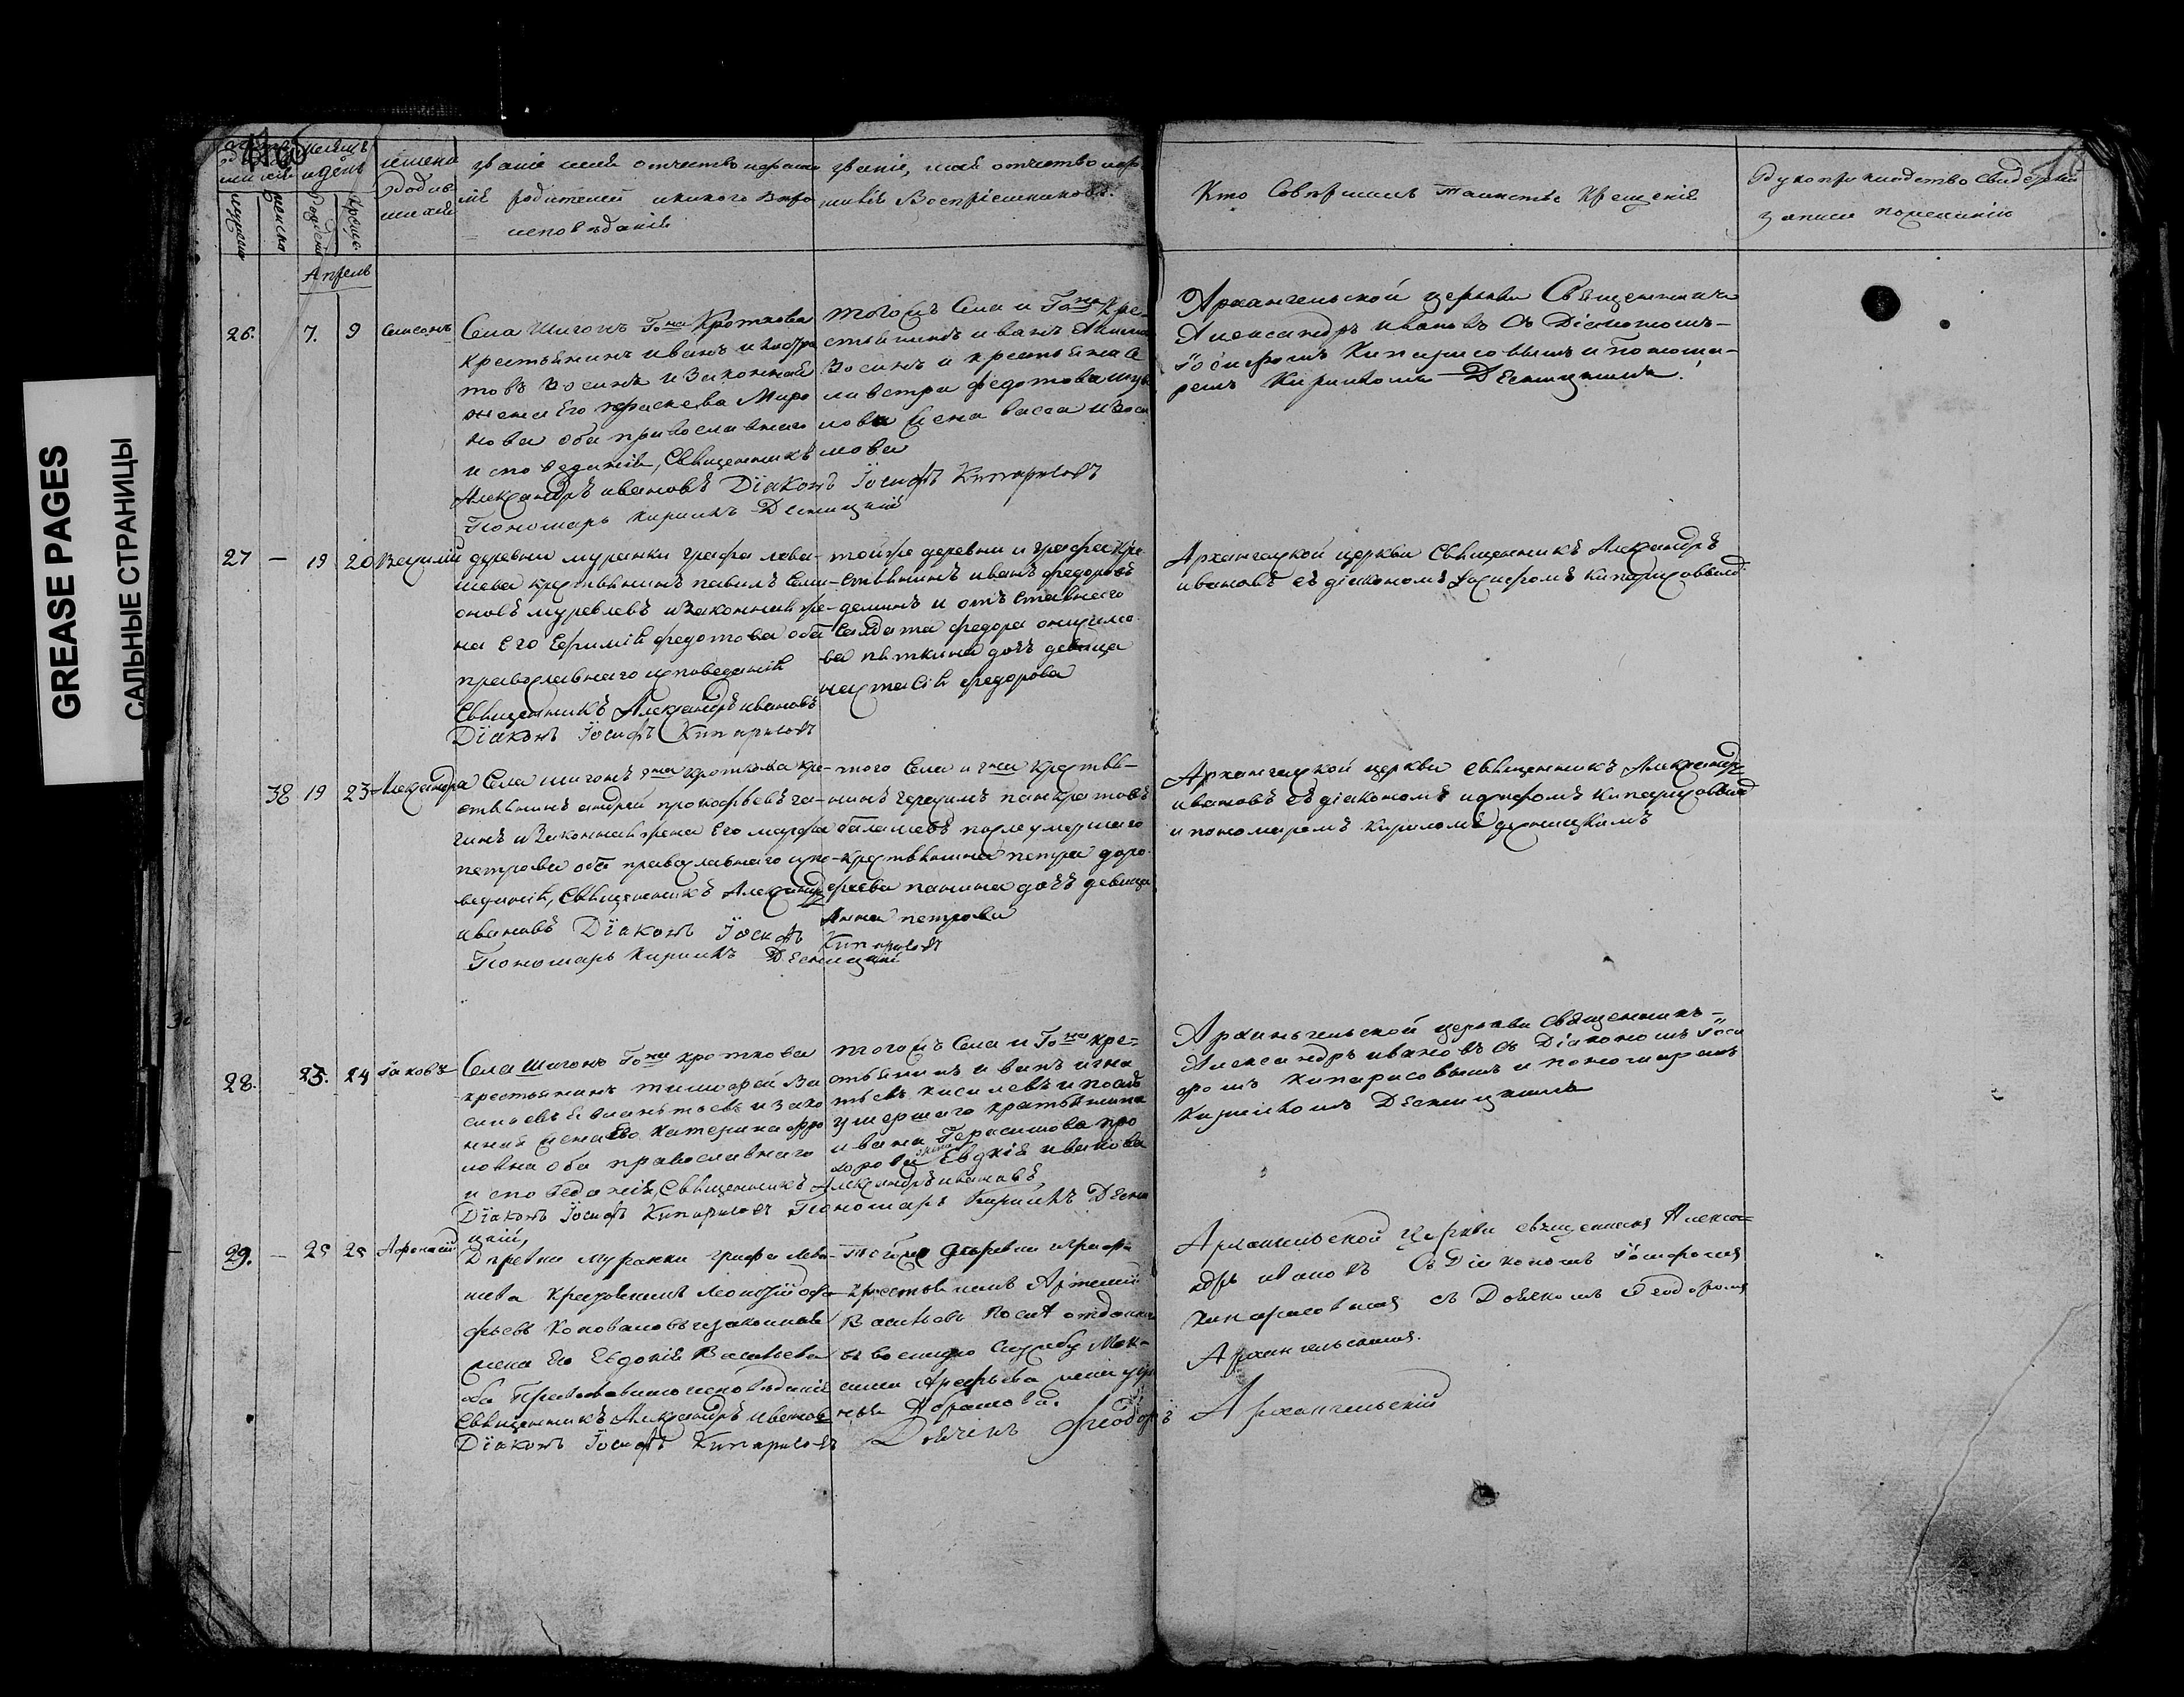 GREASE PAGES
САЛЬНЫЕ СТРАНИЦЫ
имена
родив
шихся
званіе имя отчество и фами
лія родителей и какого вѣро
исповѣданія
званіе, имя отчество и фа
милія Воспріемниковъ.
Кто Совершилъ таинство Крещенія
Рукоприкладство свидѣтелей
записи по желанію
Апрель
26.
7.
9
Симеонъ
Села Шигонъ Го на Кроткова
крестьянинъ иванъ
зосинъ и Законная
жена его Миро
нова оба православнаго
исповеданія, Священникъ
Александръ ивановъ Діаконъ Іосифъ Кипарисовъ
Пономарь Кирилъ Десницкій
тогожъ Села и Го на Кре
стьянинъ иванъ
зосинъ и крестьянина
федотова
лова жена васса
мова
Архангельской церькви Священникъ
Александръ ивановъ Съ Діакономъ
Іосифомъ Кипарисовымъ и Понома-
ремъ Кириломъ Десницкимъ.
27
—
19
20
Василій
деревни муранки графа лева-
шева крестьянинъ павилъ Сели-
оновъ муревлевъ и Законная же-
на Его Ефимія федотова оба
православнаго исповеданія
Священникъ Александръ ивановъ
Діаконъ Іосифъ Кипарисовъ
тойже деревни и графа кре-
стьянинъ иванъ федоровъ
деминъ и отъ ставнаго
Салдата федора онисимо
ва пяткина дочь девица
настасія федорова
Архангелской церкви Священникъ Александръ
ивановъ съ діакономъ Іосифомъ Кипарисовымъ
38
19
23
Александра
Села шигонъ гна кроткова кре-
стьянинъ андрей прокофьевъ га-
гинъ и Законная жена Его марфа
петрова оба православнаго испо-
веданія, Священникъ Александръ
ивановъ Діаконъ Іосифъ Кипарисовъ
Пономарь Кирилъ Десницкій
того Села и гна Крестья-
нинъ герасимъ панкратовъ
балашевъ после умершаго
крестьянина петра доро
феева панина дочь девица
Анна петрова
Архангелской церкви священникъ Александръ
ивановъ съ діакономъ иосифомъ кипарисовымъ
и пономаремъ кириломъ десницкимъ
28.
23.
24
Іаковъ
Села Шигонъ Го на кроткова
крестьянинъ тимофей Ва
сильевъ и зако
нная жена Его Катерина фро
ловна оба православнаго
исповеданія, Священникъ Александръ ивановъ
Діаконъ Іосифъ Кипарисовъ Пономарь Кирилъ Десни
цкій,
тогожъ Села и Го на кре-
стьянинъ иванъ игна
тьевъ киселевъ и послѣ
умершаго крестьянина
ивана Герасимова про
хорова жена Евдкія иванова
Архангельской церькви священникъ
Александръ ивановъ съ Діакономъ Іоси
фомъ кипарисовымъ и пономаремъ
Кириломъ Десницкимъ
29.
—
25
25
Афонасій
Деревни муранки графа Лева-
шева Крестьянинъ Леонтій
фьевъ Коповаловъ и законная
жена его Евдокія Васильева
оба Православнаго исповѣданія
Священникъ Александръ ивановъ
Діаконъ Іосифъ Кипарисовъ
Тойже деревни и графа
крестьянинъ Артемій
Васильевъ после отданнаго
въ военную службу Мак-
сима Арефьева жена
Абрамова.
Дьячекъ Ѳеодоръ Архангельскій
Архангельской Церкви священникъ Алекса-
ндръ ивановъ Съ Діякономъ Іосифомъ
кипарисовымъ съ Дьячкомъ Ѳеодоромъ
Архангельскимъ.